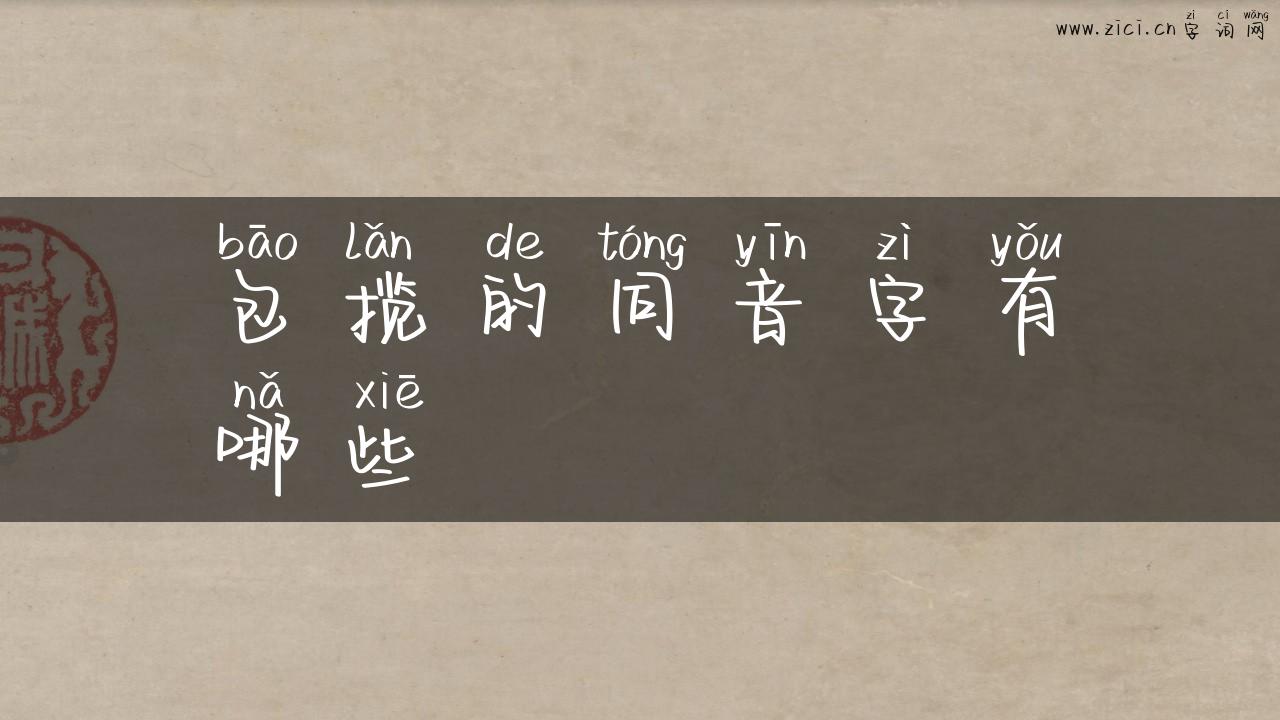 zì cí wǎng
www.zici.cn字词网
bāo lǎn de tóng yīn zì yǒu
包揽的同音字有
nǎ xiē
哪些